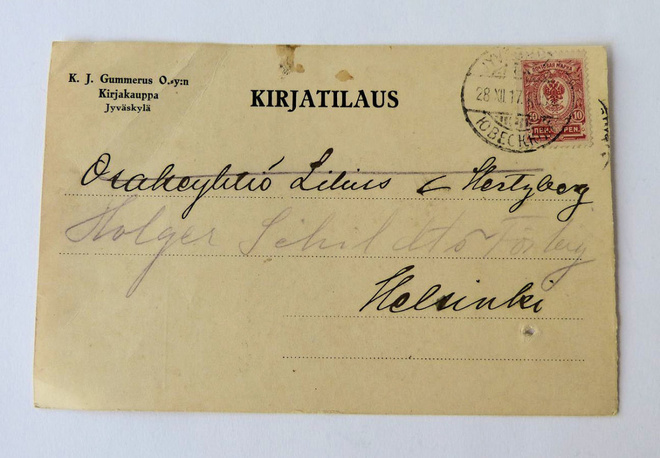 K. J. Gummerus O.-y:n
Kirjakauppa
Jyväskylä
KIRJATILAUS
28.XII.17
10 10
PEN.
Osakeyhtiö Lilius & Hertzberg
Holger Schildts Förlag
Helsinki